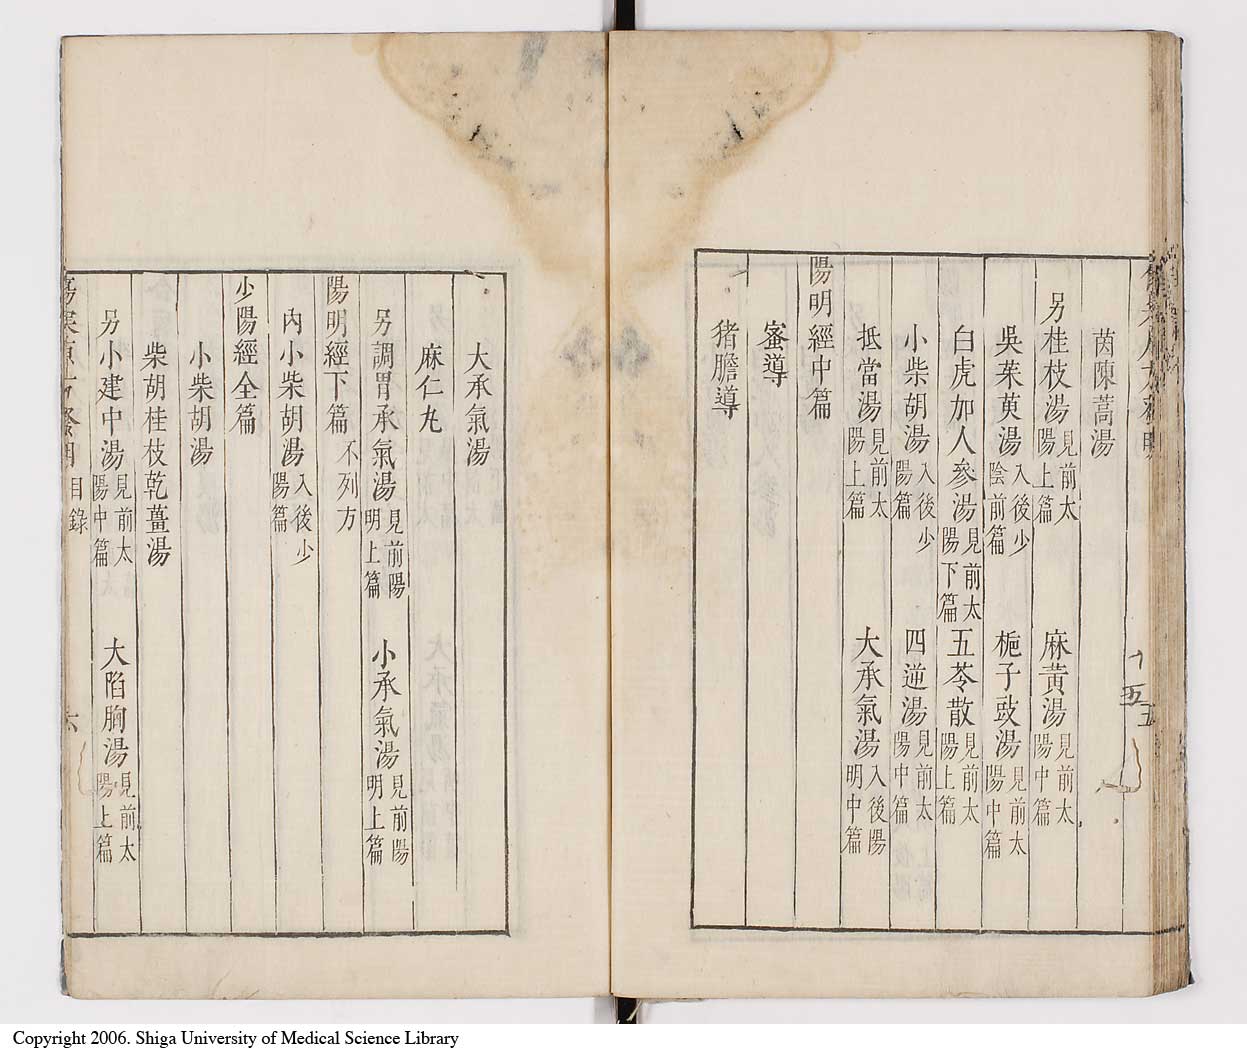 茵陳蒿湯
另桂枝湯 見前太陽上篇 麻黃湯 見前太陽中篇
吳茱萸湯 入後少陰前篇 梔子豉湯 見前太陽中篇
白虎加人參湯 見前太陽下篇 五苓散 見前太陽上篇
小柴胡湯 入後少陽篇 四逆湯 見前太陽中篇
抵當湯 見前太陽上篇 大承氣湯 入後陽明中篇
陽明經中篇
蜜導
猪膽導
大承氣湯
麻仁丸
另調胃承氣湯 見前陽明上篇 小承氣湯 見前陽明上篇
陽明經下篇 不列方
內小柴胡湯 入後少陽篇
少陽經全篇
小柴胡湯
柴胡桂枝乾薑湯
另小建中湯 見前太陽中篇 大陷胸湯 見前太陽上篇
目錄 六
Copyright 2006. Shiga University of Medical Science Library